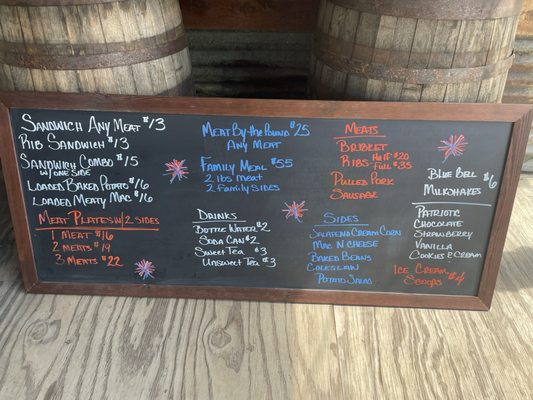 Sandwich Any Meat $13
Rib Sandwich $13
Sandwich Combo $15
w/ one side
Loaded Baked Potato $16
Loaded Meaty Mac $16
Meat Plates w/ 2 sides
1 Meat $16
2 Meats $19
3 Meats $22
Meat By-the-Pound $25
Any Meat
Family Meal $55
2 lbs meat
2 Family Sides
Drinks
Bottle Water $2
Soda Can $2
Sweet Tea $3
Unsweet Tea $3
Meats
Brisket
Ribs- Half $20
Full $35
Pulled Pork
Sausage
Sides
Jalapeno Cream Corn
Mac N Cheese
Baked Beans
Coleslaw
Potato Salad
Blue Bell $6
Milkshakes
Patriotic
Chocolate
Strawberry
Vanilla
Cookies & Cream
Ice Cream $4
Scoops